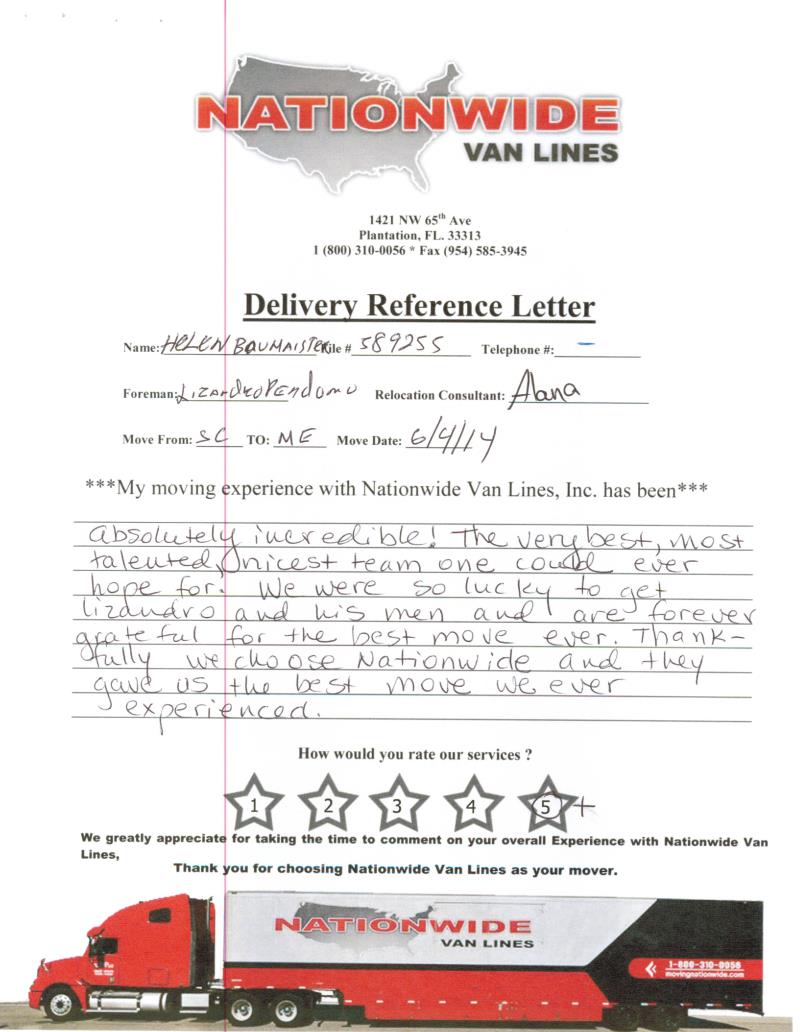 NATIONWIDE
VAN LINES
1421 NW 65th Ave
Plantation, FL. 33313
1 (800) 310-0056 * Fax (954) 585-3945
Delivery Reference Letter
Name: HELEN BAUMAISTER File # 589255 Telephone #: –
Foreman: Lizandro Rendomo Relocation Consultant: Alana
Move From: SC TO: ME Move Date: 6/4/14
***My moving experience with Nationwide Van Lines, Inc. has been***
absolutely incredible! The very best, most
talented, nicest team one could ever
hope for. We were so lucky to get
lizandro and his men and are forever
grateful for the best move ever. Thank-
fully we choose Nationwide and they
gave us the best move we ever
experienced.
How would you rate our services ?
1 2 3 4 5 +
We greatly appreciate for taking the time to comment on your overall Experience with Nationwide Van
Lines,
Thank you for choosing Nationwide Van Lines as your mover.
NATIONWIDE
VAN LINES
1-800-310-0056
movingnationwide.com